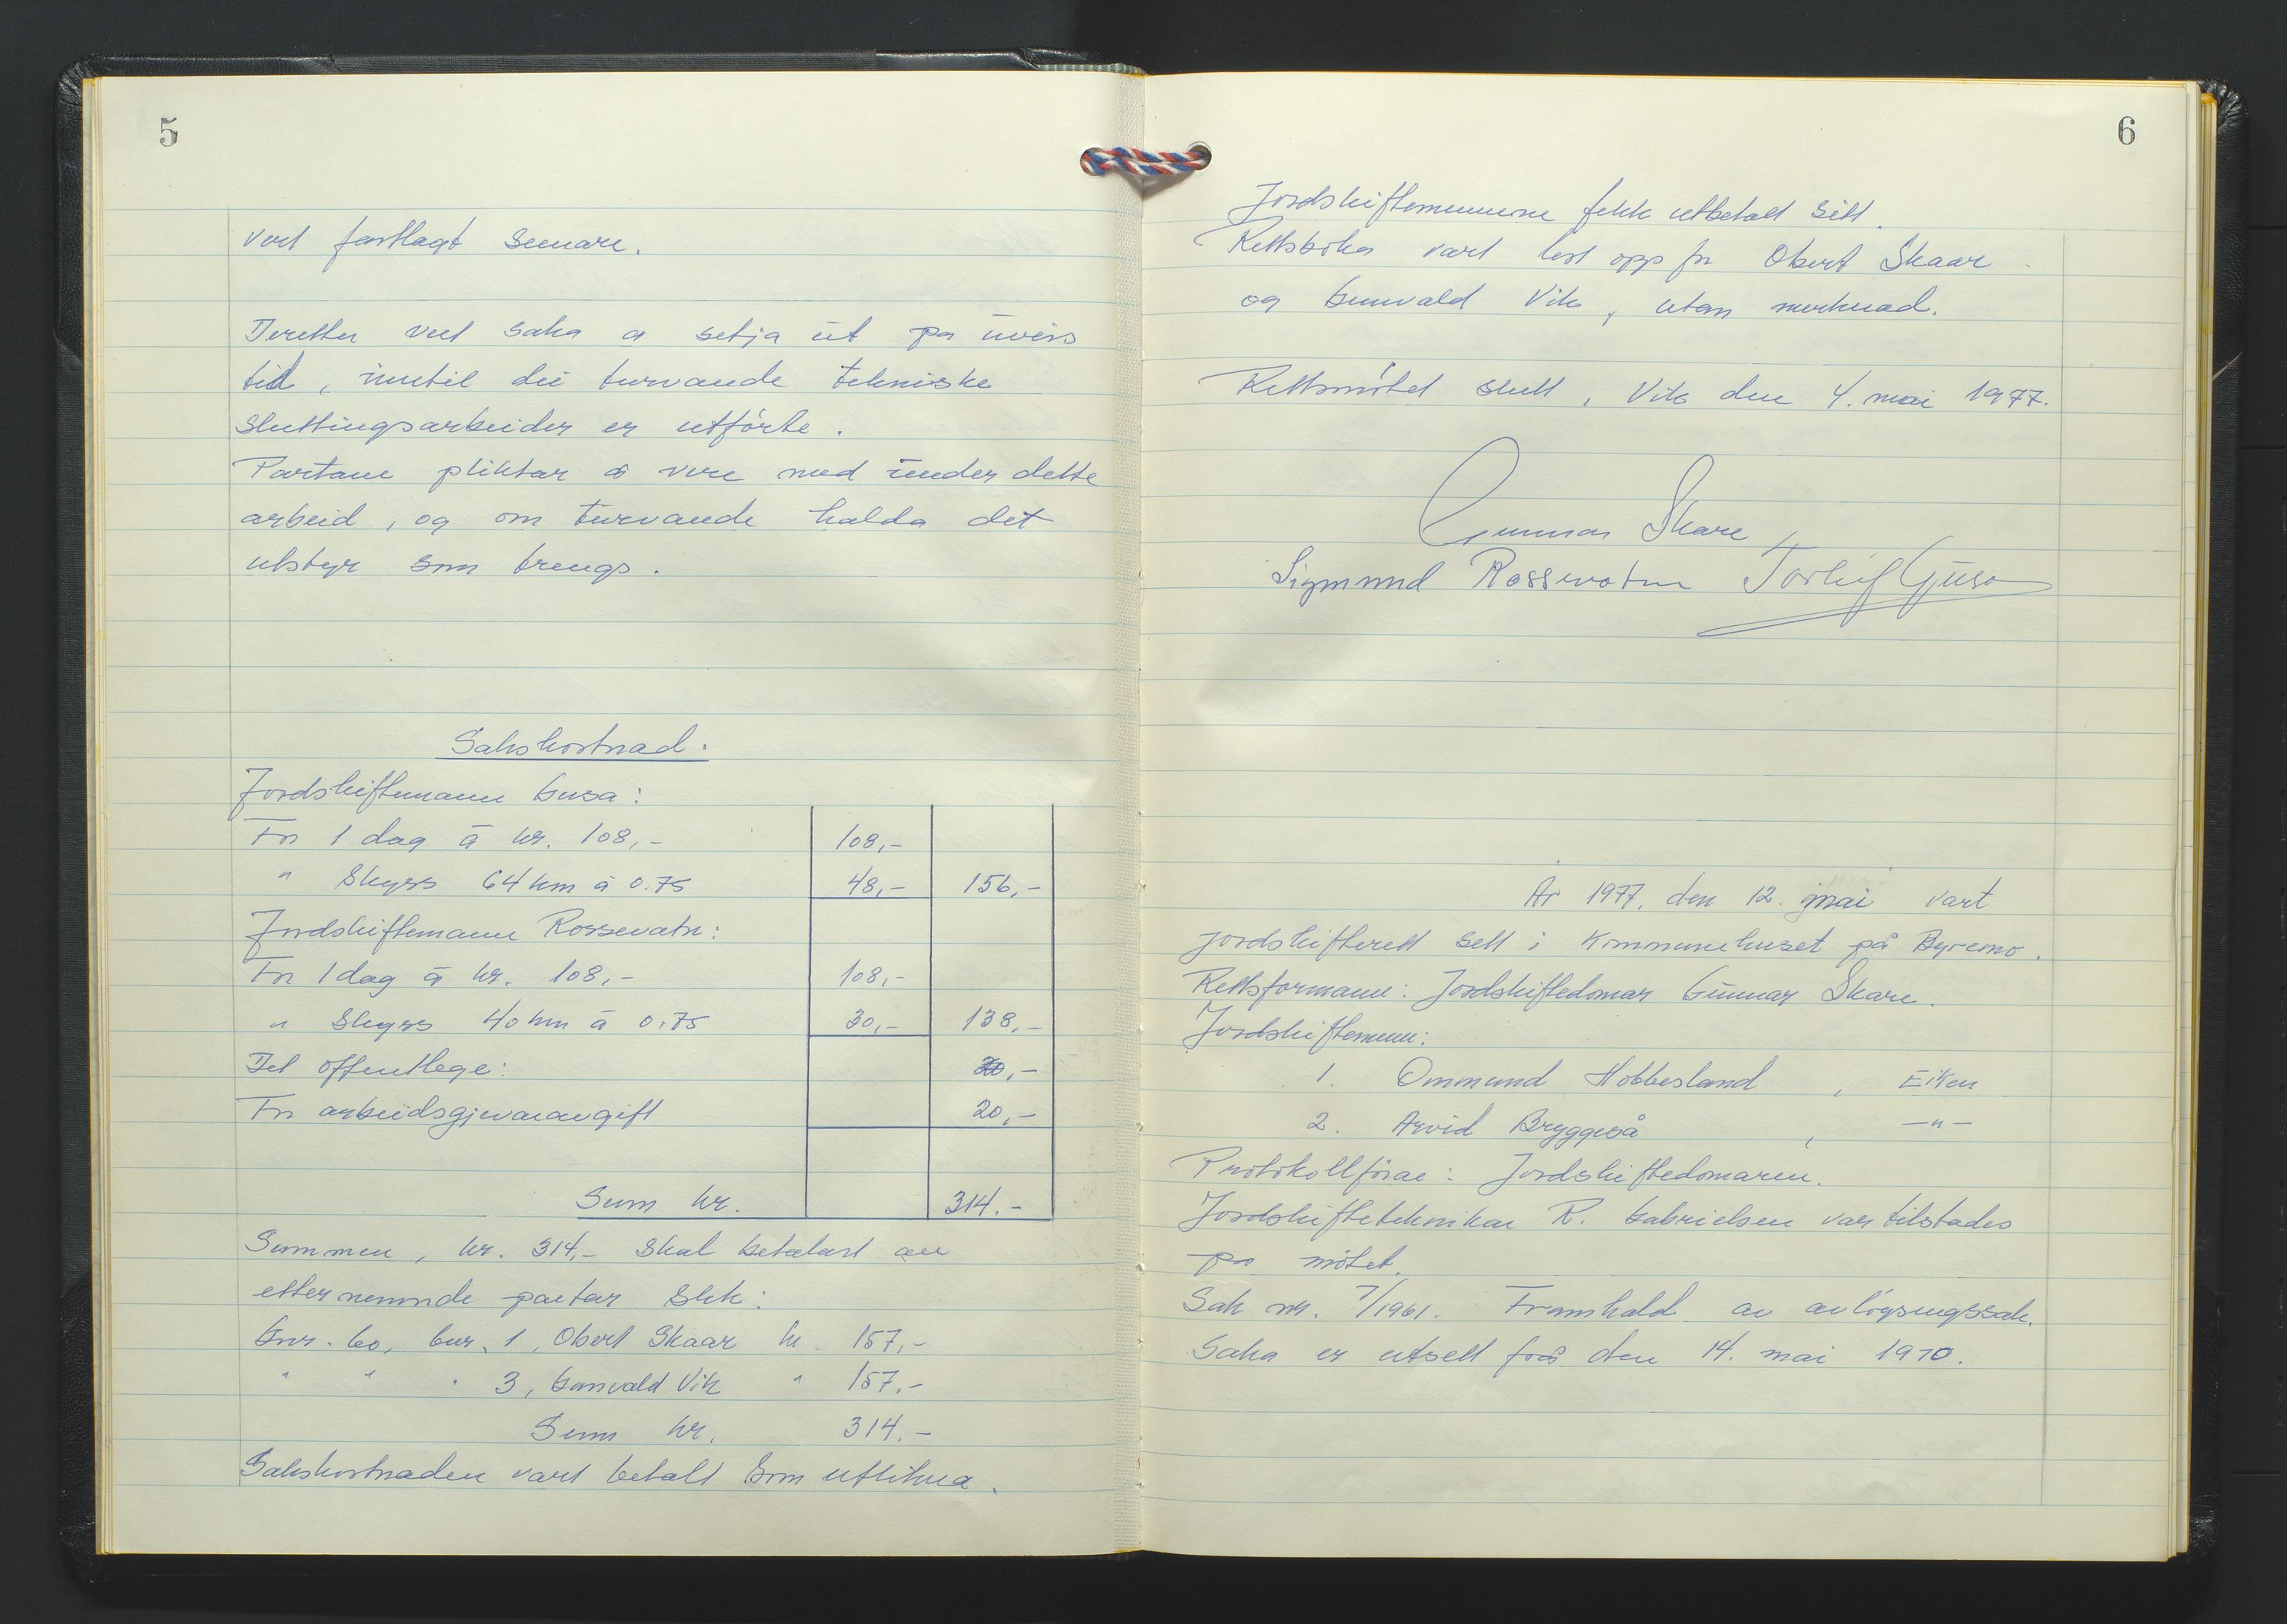 5
vert fastlagt seinare.
Deretter vert saka å setja ut på uviss
tid, inntil dei turvande tekniske
sluttingsarbeider er utførte.
Partane pliktar å vere med under dette
arbeid, og om turvande halda det
utstyr som trengs.
Sakskostnad.
Jordskiftemann Gusa:
For 1 dag á kr. 108,- 108,-
" Skyss 64 km á 0.75 48,- 156,-
Jordskiftemann Rossevatn:
For 1 dag á kr. 108,- 108,-
" Skyss 40 km á 0.75 30,- 138,-
Det offentlege: 20,-
For arbeidsgjevaravgift 20,-
Sum kr. 314.-
Summen, kr. 314,- skal betalast av
etternemnde partar slik:
Gnr. 60, bnr. 1, Obert Skaar kr. 157,-
" " " 3, Gunvald Vik " 157.-
Sum kr. 314.-
Sakskostnaden vart betalt som utlikna.
6
Jordskiftemennene fekk utbetalt sitt.
Rettsboka vart lest opp for Obert Skaar
og Gunvald Vik, utan merknad.
Rettsmøtet slutt, Vik den 4. mai 1977.
Gunnar Skare
Sigmund Rossevatn Torleif Gusa
År 1977, den 12. mai vart
jordskifterett sett i kommunehuset på Byremo.
Rettsformann: Jordskiftedomar Gunnar Skare.
Jordskiftemenn:
1. Ommund Hobbesland, Eiken
2. Arvid Bryggeså, -"-
Protokollførar: Jordskiftedomaren.
Jordskifteteknikar R. Gabrielsen var tilstades
på møtet.
Sak nr. 7/1961. Framhald av avløysingssak.
Saka er utsett frå den 14. mai 1970.